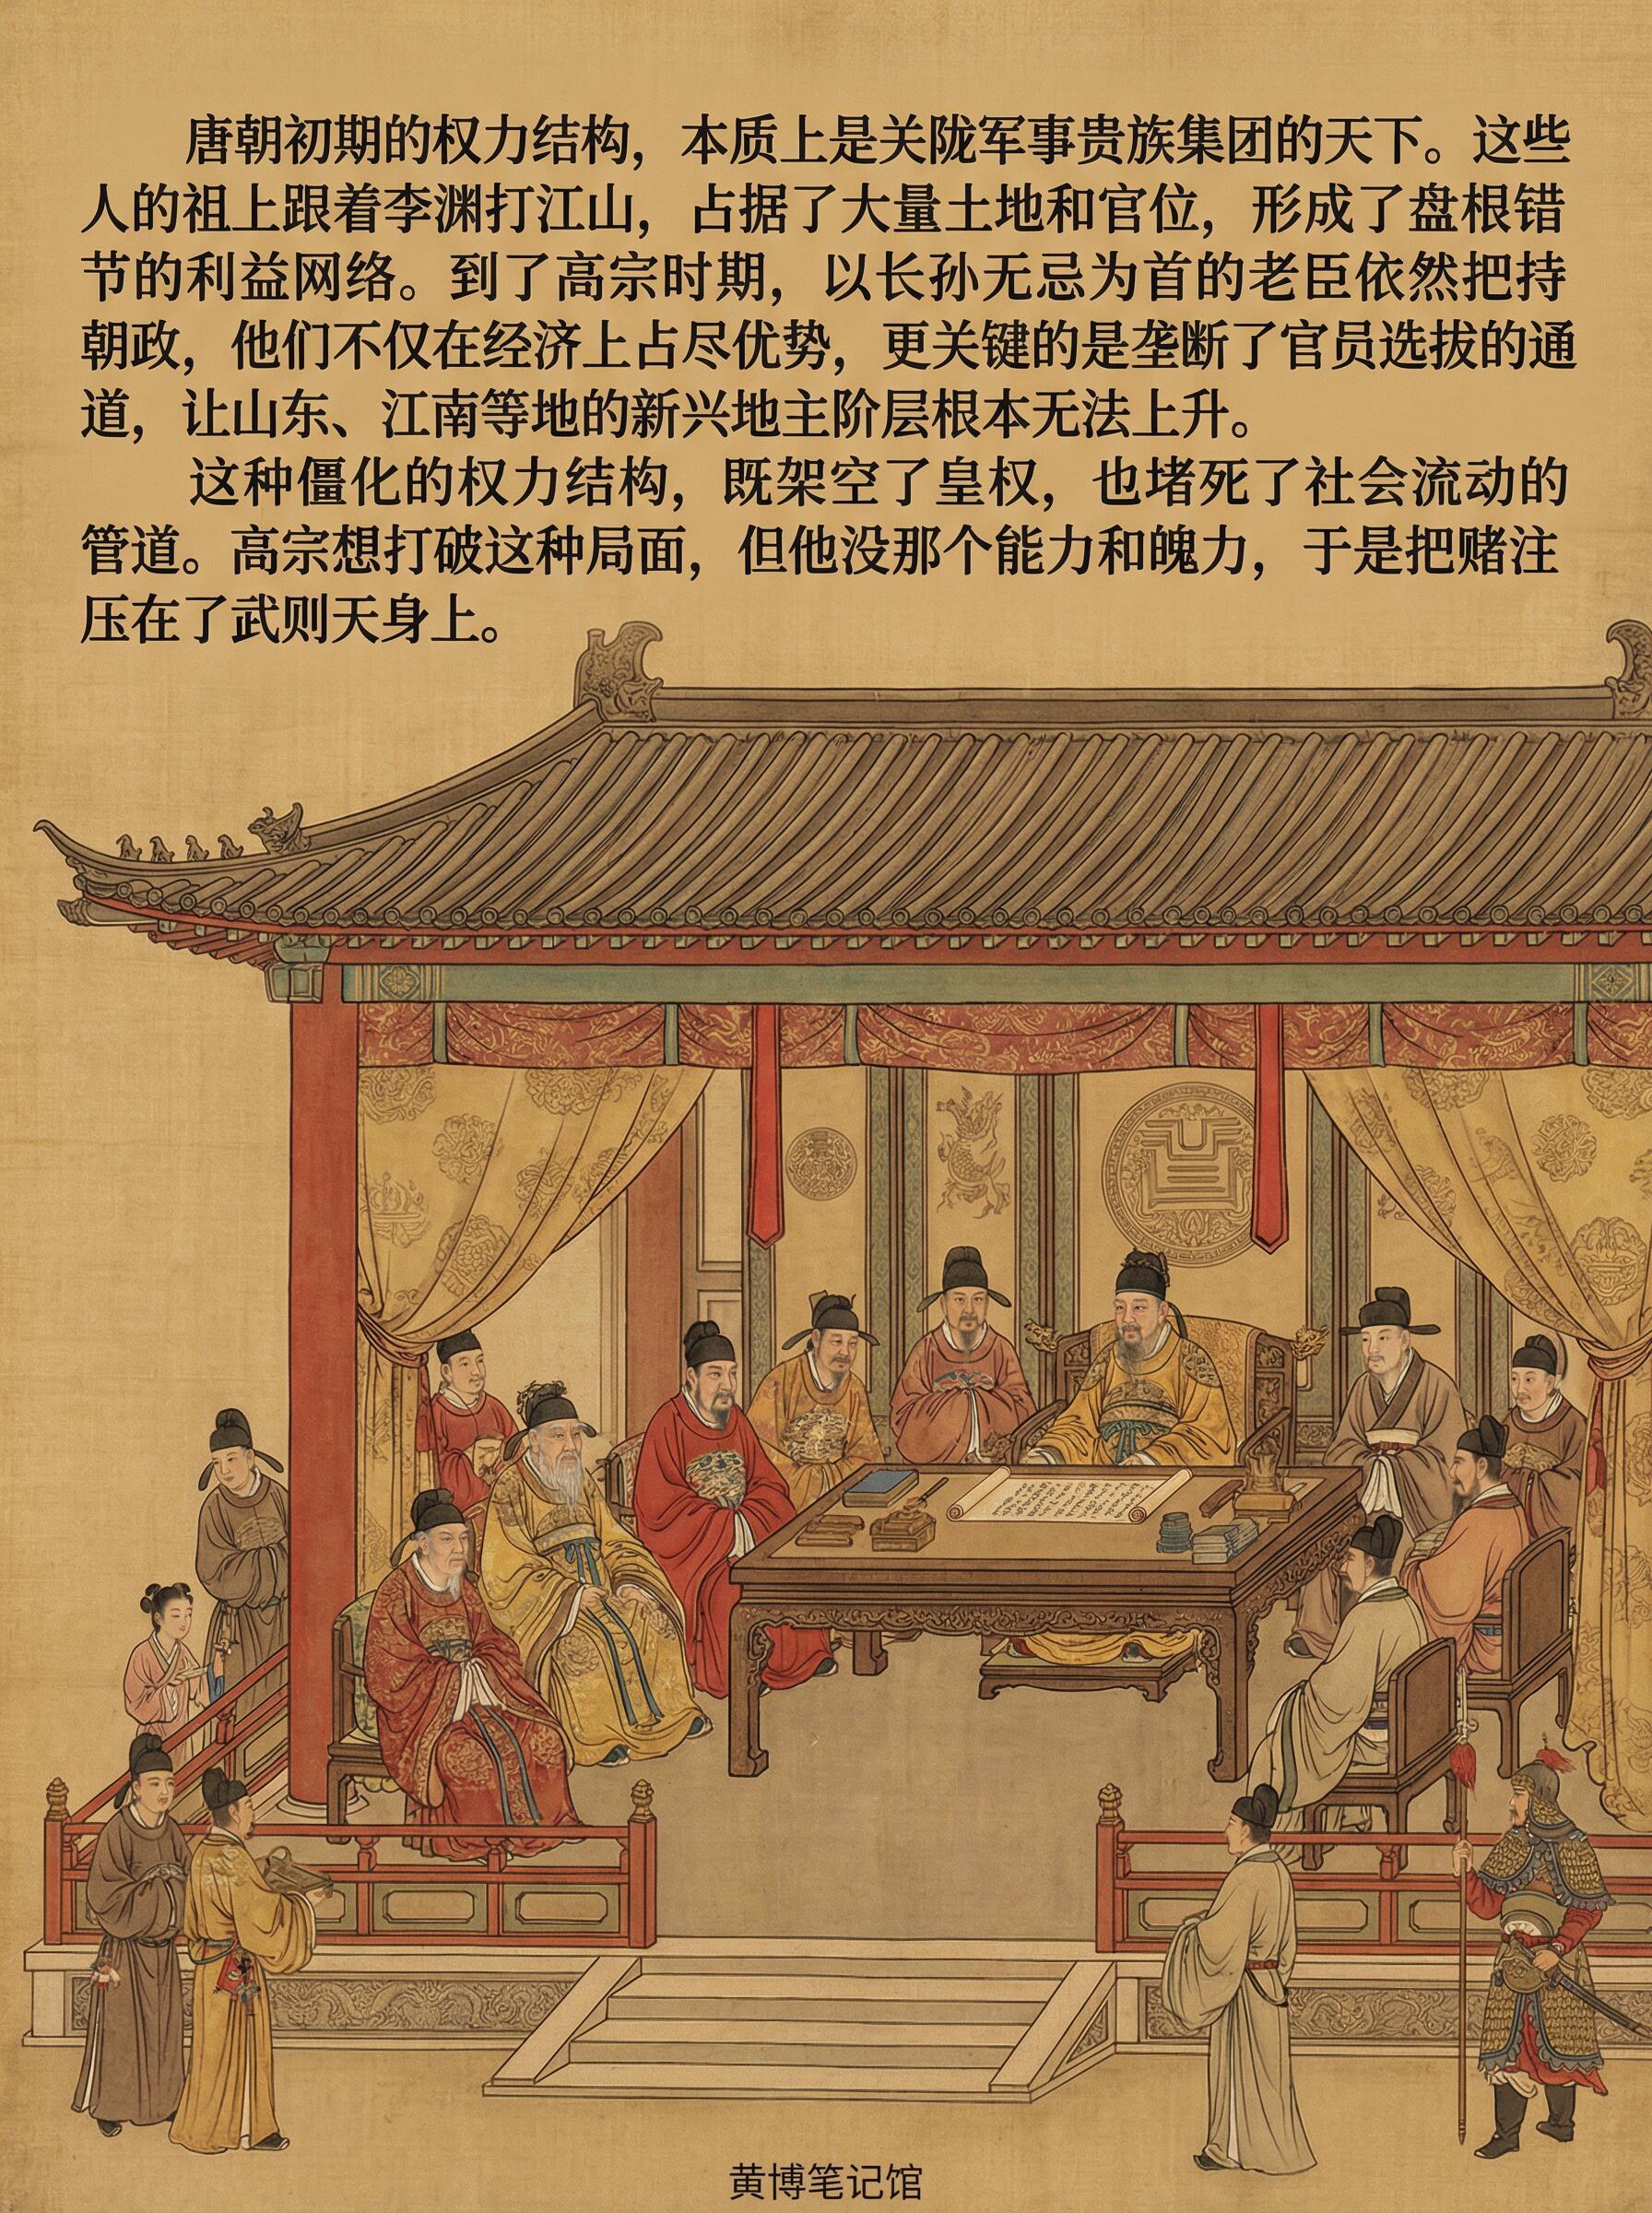 唐朝初期的权力结构，本质上是关陇军事贵族集团的天下。这些
人的祖上跟着李渊打江山，占据了大量土地和官位，形成了盘根错
节的利益网络。到了高宗时期，以长孙无忌为首的老臣依然把持
朝政，他们不仅在经济上占尽优势，更关键的是垄断了官员选拔的通
道，让山东、江南等地的新兴地主阶层根本无法上升。
这种僵化的权力结构，既架空了皇权，也堵死了社会流动的
管道。高宗想打破这种局面，但他没那个能力和魄力，于是把赌注
压在了武则天身上。
黄博笔记馆